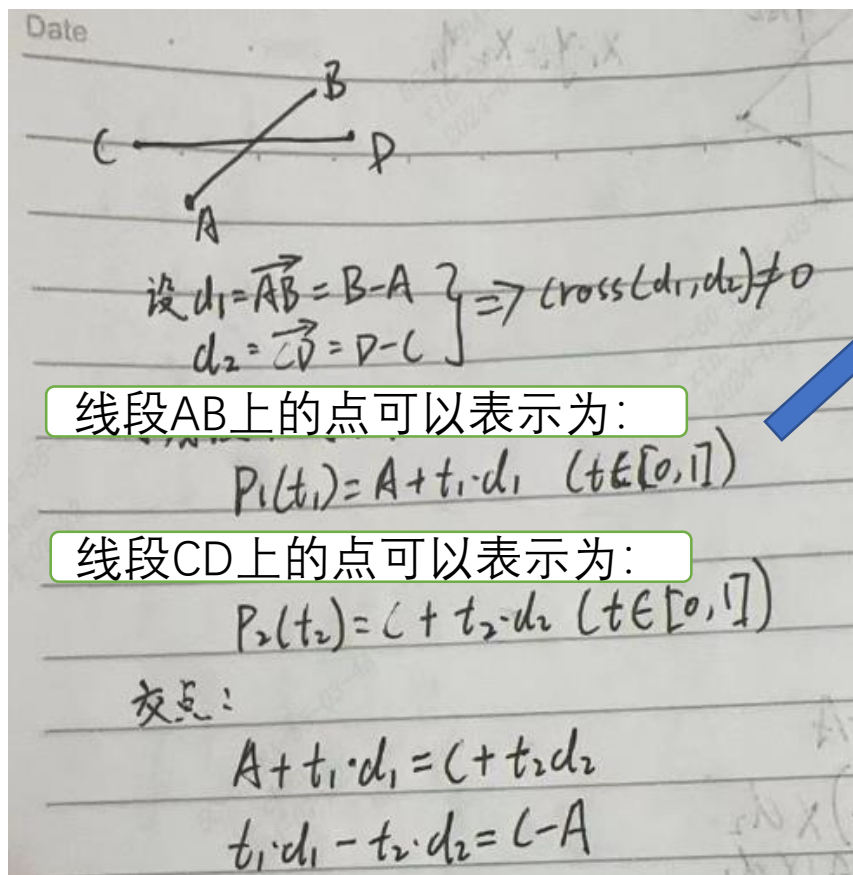 Date
B
C
D
A
设 d₁=AB=B-A } => cross(d₁,d₂)≠0
d₂=CD=D-C
线段AB上的点可以表示为:
P₁(t₁)=A+t₁·d₁ (t∈[0,1])
线段CD上的点可以表示为:
P₂(t₂)=C+t₂·d₂ (t∈[0,1])
交点:
A+t₁·d₁=C+t₂d₂
t₁·d₁-t₂·d₂=C-A